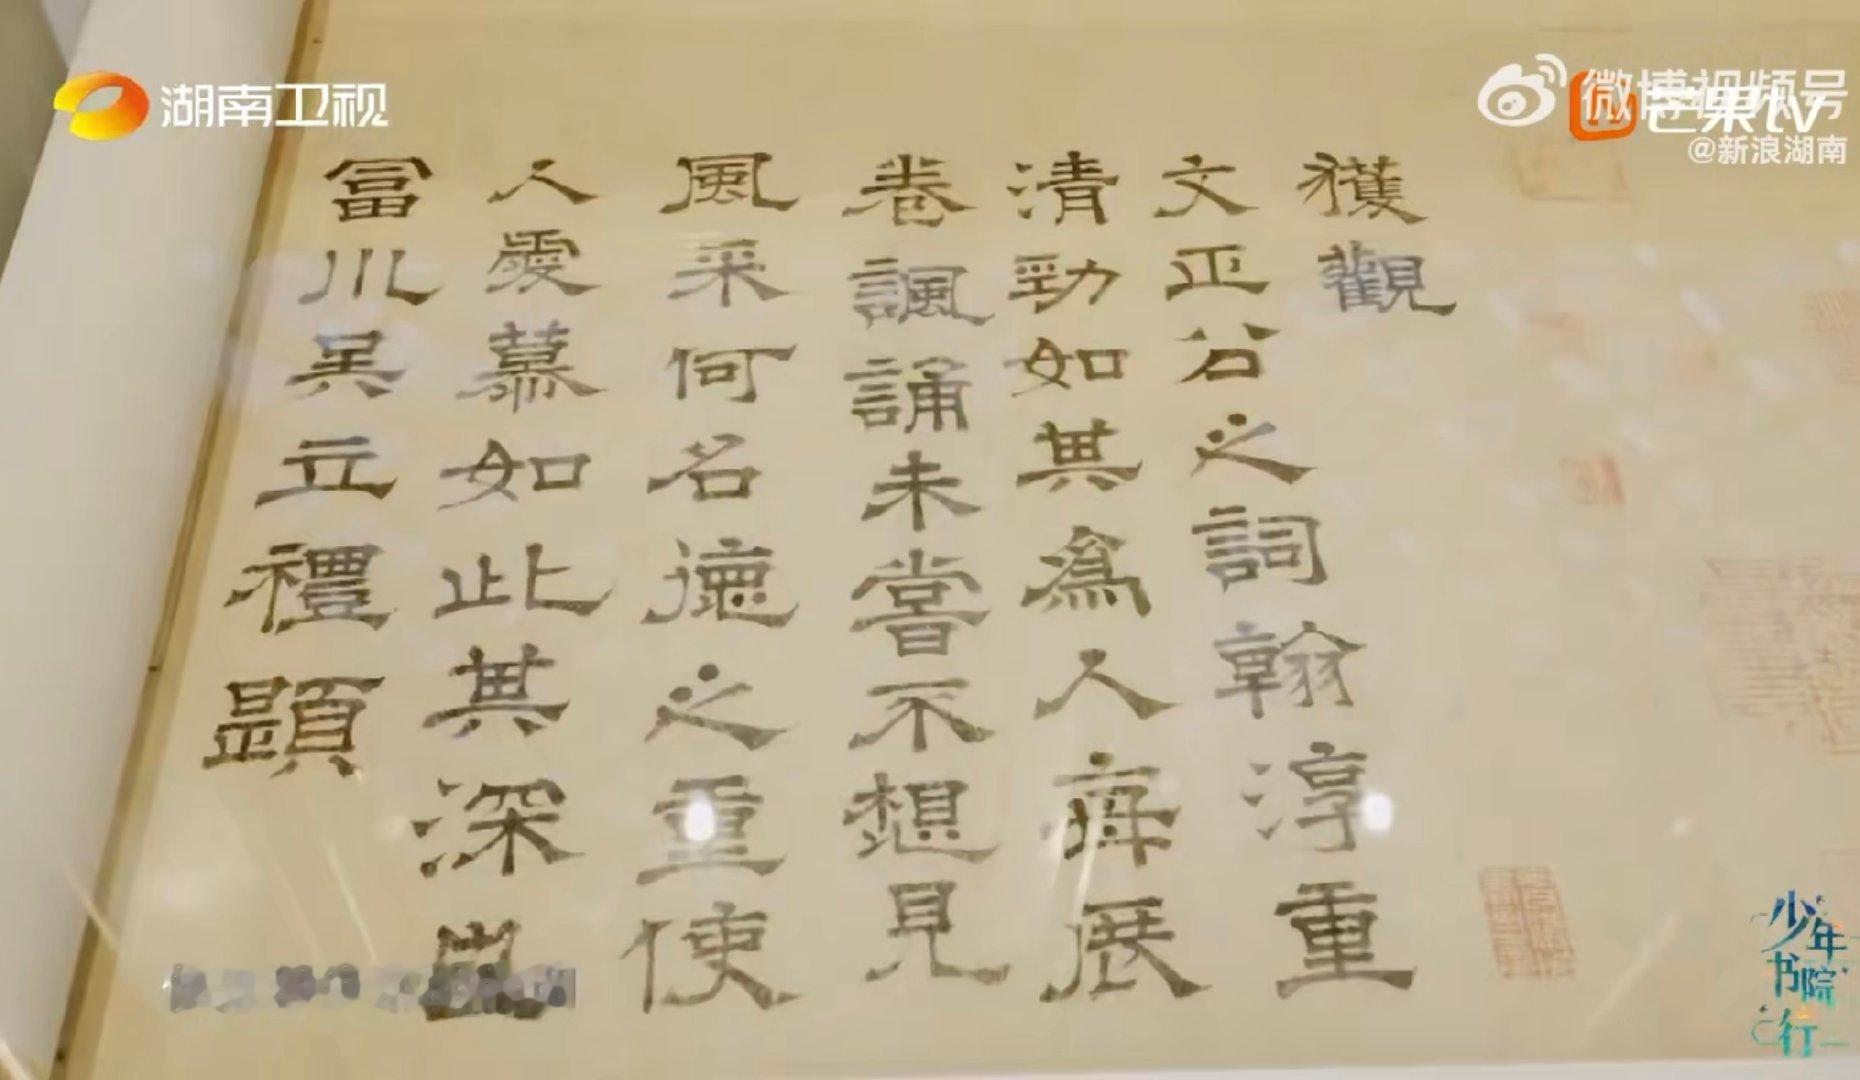 湖南卫视
微博视频号
芒果tv
@新浪湖南
獲觀
文正公之詞翰淳重
清勁如其爲人每展
卷諷誦未嘗不想見
風采何名德之重使
人愛慕如此其深
冨川吴立禮題
少年
书院
行